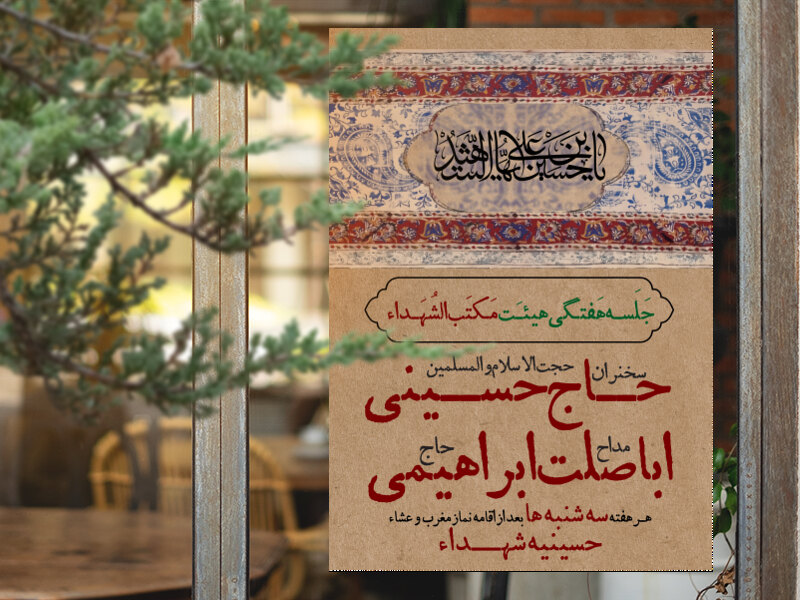 یا حسین بن علی ایها الشهید
جَلَسه هَفتگی هیئَت مَکتَب الشُهَداء
سخنران حجت الاسلام والمسلمین
حاج حسینی
مداح حاج
اباصلت ابراهیمی
هر هفته سه شنبه ها بعد از اقامه نماز مغرب و عشاء
حسینیه شهداء